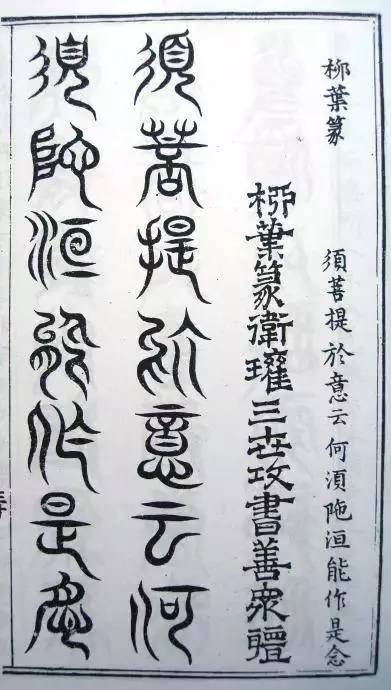 柳葉篆
須菩提於意云何須陁洹能作是念
柳葉篆衛瓘三世攻書善衆體
須菩提於意云何
須陁洹能作是念